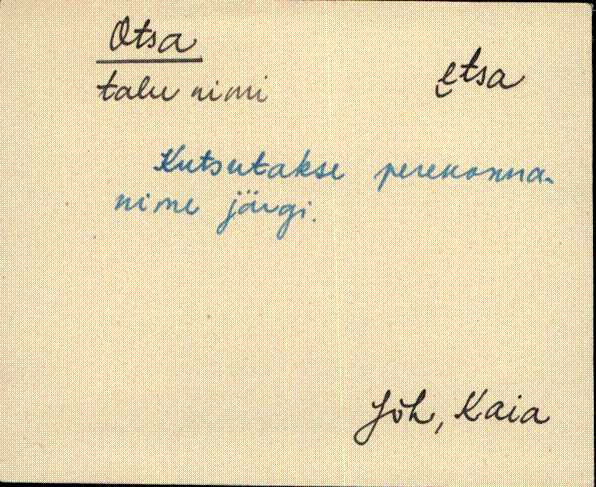 Otsa
talu nimi
e̮tsa
Kutsutakse perekonna-
nime järgi.
Jõh, Kaia